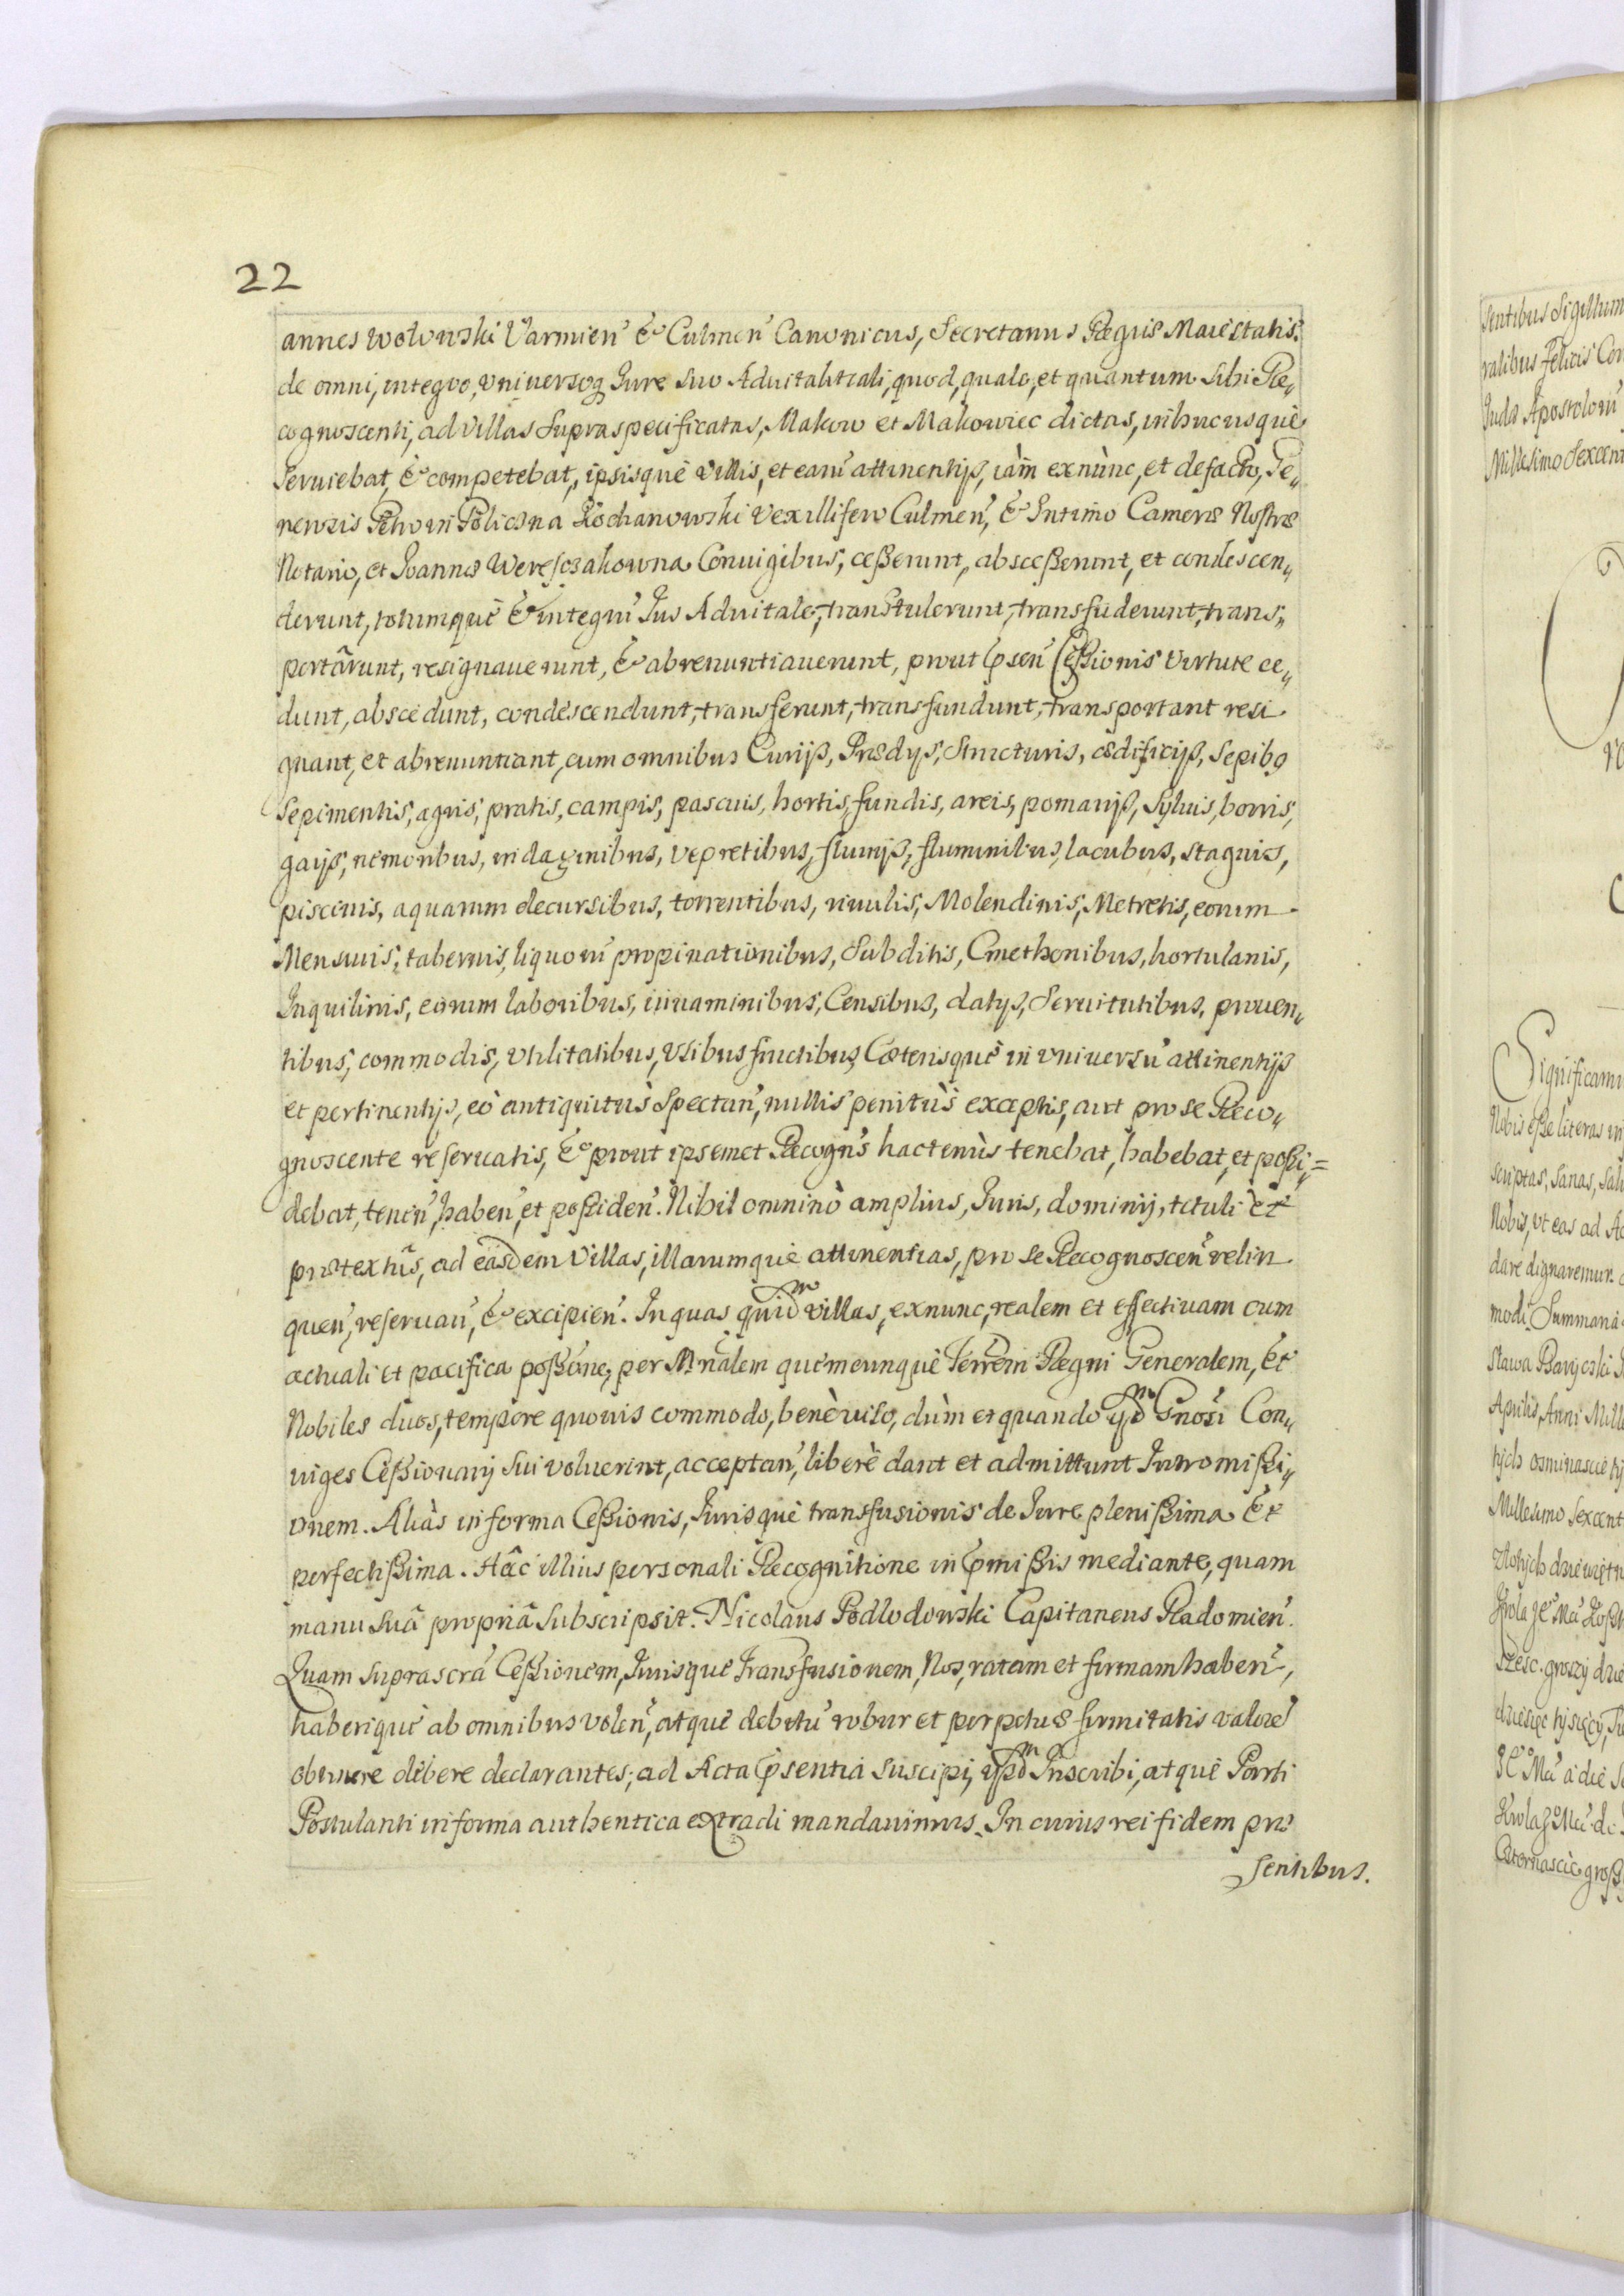 22
annes Wolowski Varmien̄ & Culmen̄ Canonicus, Secretarius Regiæ Maiestatis.
de omni, integro, vniversoq; Jure suo Aduitalitiali, quod, quale, et quantum sibi Re„
cognoscenti, ad villas supraspecificatas, Makow et Makowiec dictas, inhucusquè
seruiebat, & competebat, ipsisquè villis, et earū attinentijs, iàm exnùnc, et defacto, Ge„
nerosis Petro in Policzna Kochanowski Vexillifero Culmen̄, & Intimo Cameræ Nostræ
Notario, et Joannæ Wereszczakowna Coniugibus, ceßerunt, absceßerunt, et condescen„
derunt, totumquè & integrū Jus Aduitale, transtulerunt, transfuderunt, trans„
portârunt, resignauerunt, & abrenuntiauerunt, prout p̄sen̄ Ceßionis virtute ce„
dunt, abscedunt, condescendunt, transferunt, transfundunt, transportant resi
gnant, et abrenuntiant, cum omnibus Curijs, Prædijs, structuris, ædificijs, sepibq
sepimentis, agris, pratis, campis, pascuis, hortis, fundis, areis, pomarijs, syluis, borris,
gaijs, nemoribus, indaginibus, vepretibus, fluuijs, fluminibus, lacubus, stagnis,
piscinis, aquarum decursibus, torrentibus, riuulis, Molendinis, Metretis, eorum
Mensuris, tabernis, liquorū propinationibus, Subditis, Cmethonibus, hortulanis,
Inquilinis, eorum laboribus, iuuaminibus, Censibus, datijs, Seruitutibus, prouen„
tibus, commodis, vtilitatibus, vsibusfructibus, Cæterisquè in vniuersū attinentijs
et pertinentijs, eò antiquitùs spectan̄, nullis penitùs exceptis, aut pro se Reco„
gnoscente reseruatis, & prout ipsemet Recogn̄s hactenùs tenebat, habebat, et poßi„=
debat, tenen̄, haben̄, et poßiden̄. Nihil omninò amplius, Juris, dominij, tituli et
prætextûs, ad easdem Villas, illarumquè attinentias, pro se Recognoscen̄ relin
quen̄, reseruan̄, & excipien̄. In quas quidm villas, exnunc, realem et effectiuam cum
actuali et pacifica poßone, per Mrīalem quemcunquè Terrēm Regni Generalem, Et
Nobiles duos, tempore quouis commodo, benèuiso, dùm et quando ijdm Gnosi Con„
iuges Ceßionarij sui voluerint, acceptan̄, liberè dant et admittunt Intromißi„
onem. Aliàs in forma Ceßionis, Jurisquè transfusionis de Jure plenißima Et
perfectißima. Hâc illius personali Recognitione in p̄mißis mediante, quam
manu suâ propriâ subscripsit. Nicolaus Podlodowski Capitaneus Radomien̄.
Quam suprascrā Ceßionem, Jurisquè Transfusionem, Nos, ratam et firmam haben̄,
haberiquè ab omnibus volen̄, atquè debitū robur et perpetuæ firmitatis valorē
obtinere debere declarantes, ad Acta p̄sentia suscipi, ijsdm Inscribi, atquè Parti
Postulanti in forma authentica extradi mandauimus. In cuius rei fidem præ
sentibus.
sentibus Sigillum
ralibus felicis Con
Judæ Apostolorū
Millesimo Sexcent
Significamus
Nobis eße literas in
scriptas, sanas, sal
Nobis, vt eas ad Ac
dare dignaremur.
modi Summaria
Aprilis, Anni Mill
Millesimo Sexcent